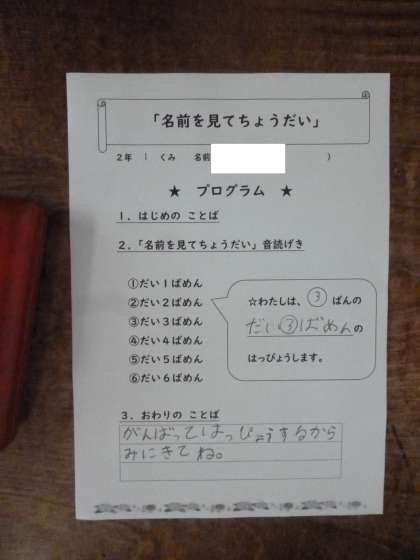 「名前を見てちょうだい」
2年 1 くみ 名前 )
★ プログラム ★
1. はじめの ことば
2.「名前を見てちょうだい」音読げき
①だい1ばめん
②だい2ばめん
③だい3ばめん
④だい4ばめん
⑤だい5ばめん
⑥だい6ばめん
☆わたしは、③ ばんの
だい③ばめんの
はっぴょうします。
3. おわりの ことば
がんばってはっぴょうするから
みにきてね。